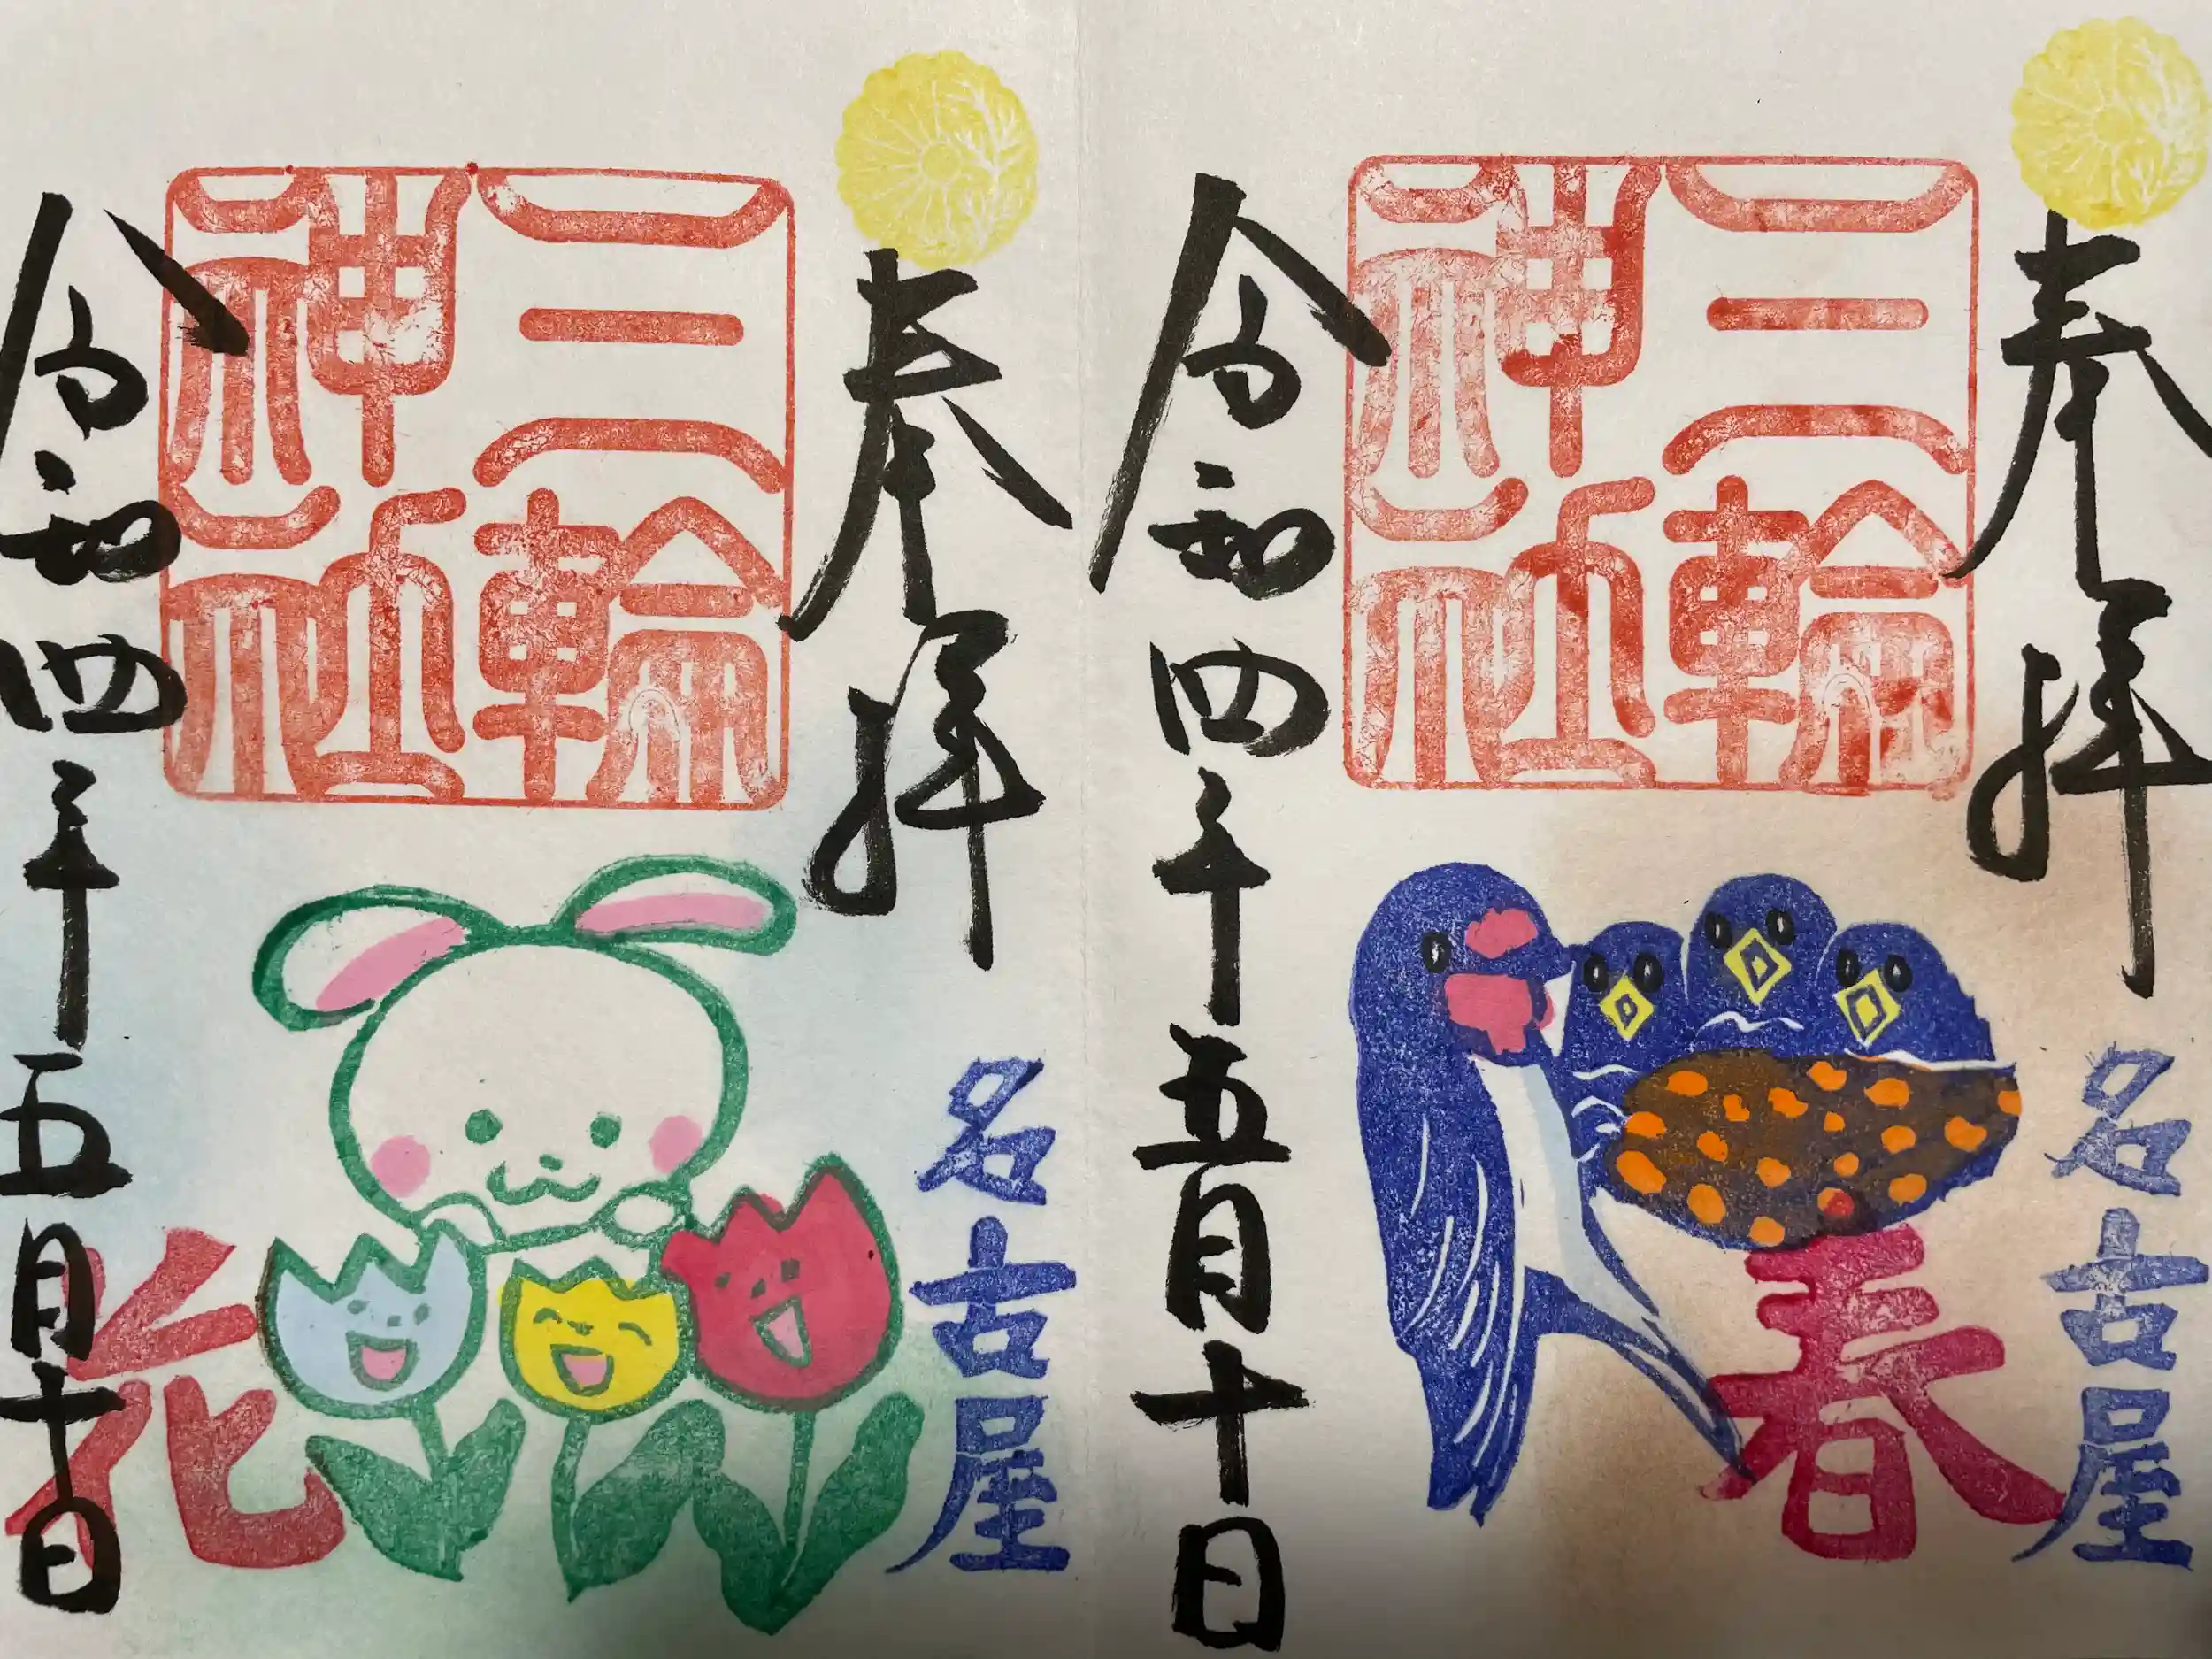 奉拝
名古屋
三輪
神社
春
令和四年五月十日
奉拝
名古屋
三輪
神社
花
令和四年五月十日